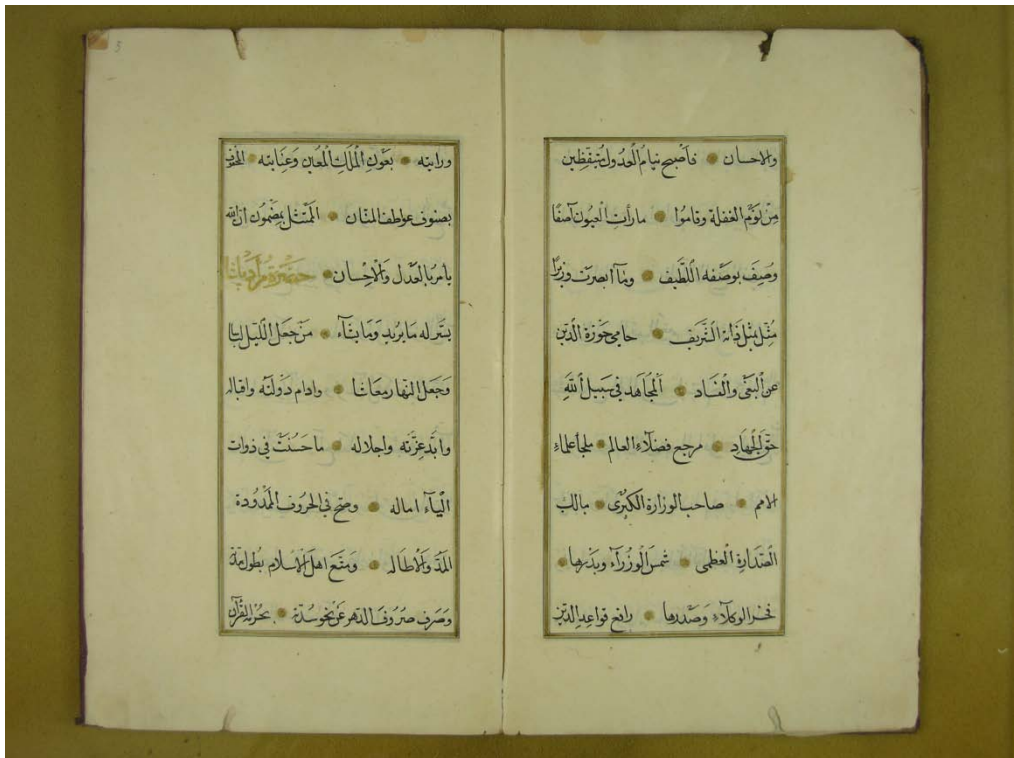 والاحسان ۰ فأصبح نيام العدول متيقظين
من نوم الغفلة وقاموا ۰ ما رأت العيون آصفا
وصيف بوصفه اللطيف ۰ وما أبصرت وزيرا
مثل بمثل ذاته الشريف ۰ حامي حوزة الدين
عن البغي والفساد ۰ المجاهد في سبيل الله
حق الجهاد ۰ مرجع فضلاء العالم ۰ ملجأ علماء
الامم ۰ صاحب الوزارة الكبرى ۰ مالك
الصدارة العظمى ۰ شمس الوزراء وبدرها ۰
فخر الوكلاء وصدرها ۰ رافع قواعد الدين
5
ورايته ۰ بعون الملك المعين وعنايته ۰ المحفوف
بصنوف عواطف المنان ۰ الممتثل بمضمون ان الله
يأمر بالعدل والاحسان ۰ حضرة مراد پاشا
يسر له ما يريد وما يشاء ۰ من جعل الليل لباسا
وجعل النهار معاشا ۰ وادام دولته واقباله
وابد عزته واجلاله ۰ ما حسنت في ذوات
الياء اماله ۰ وصح في الحروف الممدودة
المد والاطاله ۰ ومتع اهل الاسلام بطول مدته
وصرف صروف الدهر عن نحو سدته ۰ بحرمة القرآن